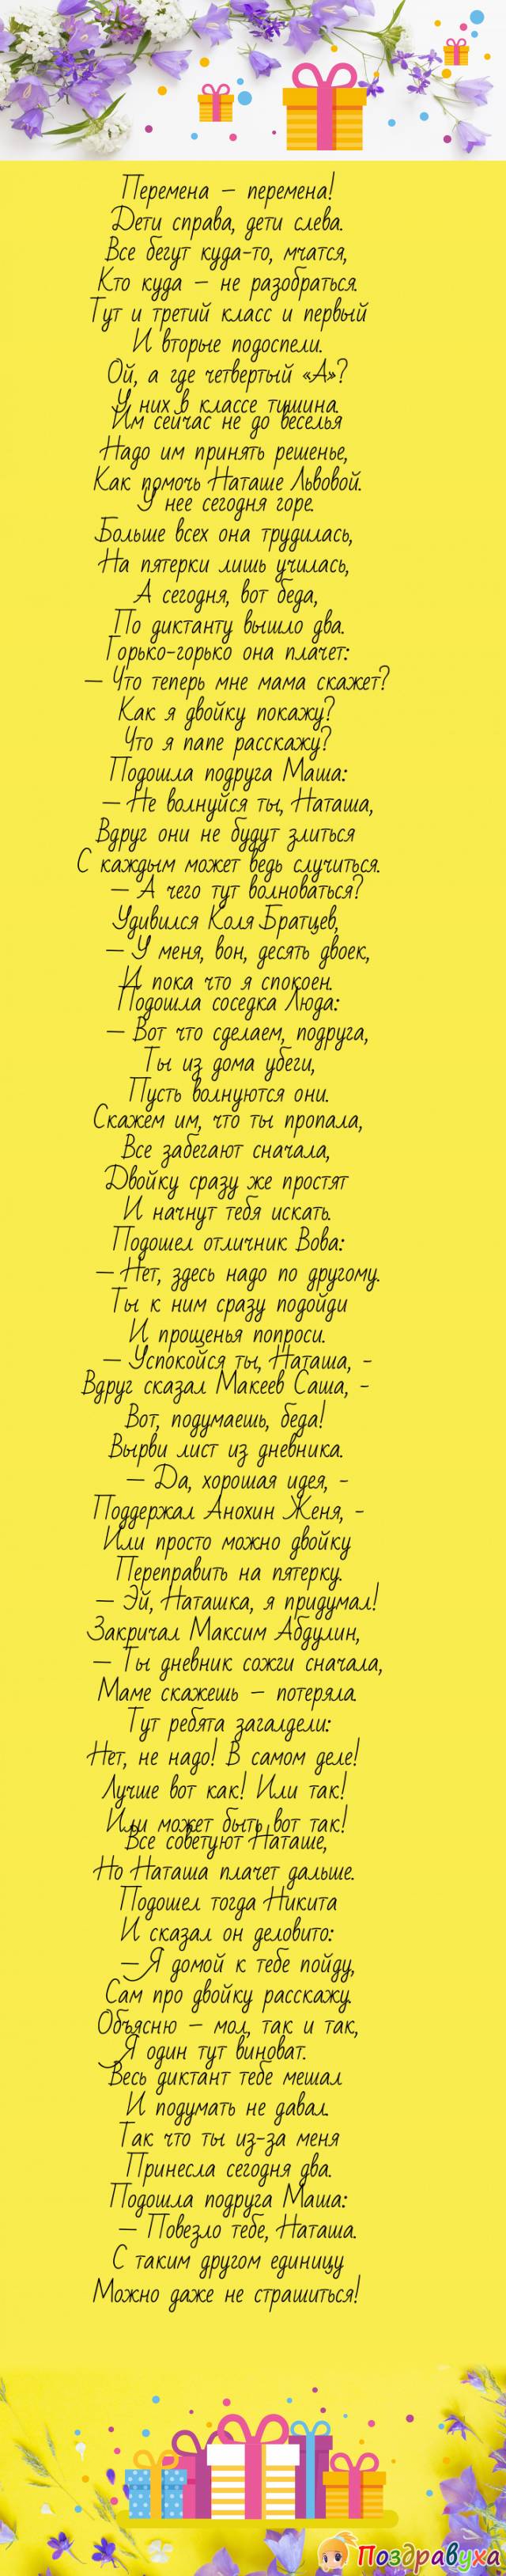 Перемена – перемена!
Дети справа, дети слева.
Все бегут куда-то, мчатся,
Кто куда – не разобраться.
Тут и третий класс и первый
И вторые подоспели.
Ой, а где четвертый «А»?
У них в классе тишина.
Им сейчас не до веселья
Надо им принять решенье,
Как помочь Наташе Львовой.
У нее сегодня горе.
Больше всех она трудилась,
На пятерки лишь училась,
А сегодня, вот беда,
По диктанту вышло два.
Горько-горько она плачет:
– Что теперь мне мама скажет?
Как я двойку покажу?
Что я папе расскажу?
Подошла подруга Маша:
– Не волнуйся ты, Наташа,
Вдруг они не будут злиться
С каждым может ведь случиться.
– А чего тут волноваться?
Удивился Коля Братцев,
– У меня, вон, десять двоек,
И пока что я спокоен.
Подошла соседка Люда:
– Вот что сделаем, подруга,
Ты из дома убеги,
Пусть волнуются они.
Скажем им, что ты пропала,
Все забегают сначала,
Двойку сразу же простят
И начнут тебя искать.
Подошел отличник Вова:
– Нет, здесь надо по другому.
Ты к ним сразу подойди
И прощенья попроси.
– Успокойся ты, Наташа, -
Вдруг сказал Макеев Саша, -
Вот, подумаешь, беда!
Вырви лист из дневника.
– Да, хорошая идея, -
Поддержал Анохин Женя, -
Или просто можно двойку
Переправить на пятерку.
– Эй, Наташка, я придумал!
Закричал Максим Абдулин,
– Ты дневник сожги сначала,
Маме скажешь – потеряла.
Тут ребята загалдели:
Нет, не надо! В самом деле!
Лучше вот как! Или так!
Или может быть вот так!
Все советуют Наташе,
Но Наташа плачет дальше.
Подошел тогда Никита
И сказал он деловито:
– Я домой к тебе пойду,
Сам про двойку расскажу.
Объясню – мол, так и так,
Я один тут виноват.
Весь диктант тебе мешал
И подумать не давал.
Так что ты из-за меня
Принесла сегодня два.
Подошла подруга Маша:
– Повезло тебе, Наташа.
С таким другом единицу
Можно даже не страшиться!
Поздравуха